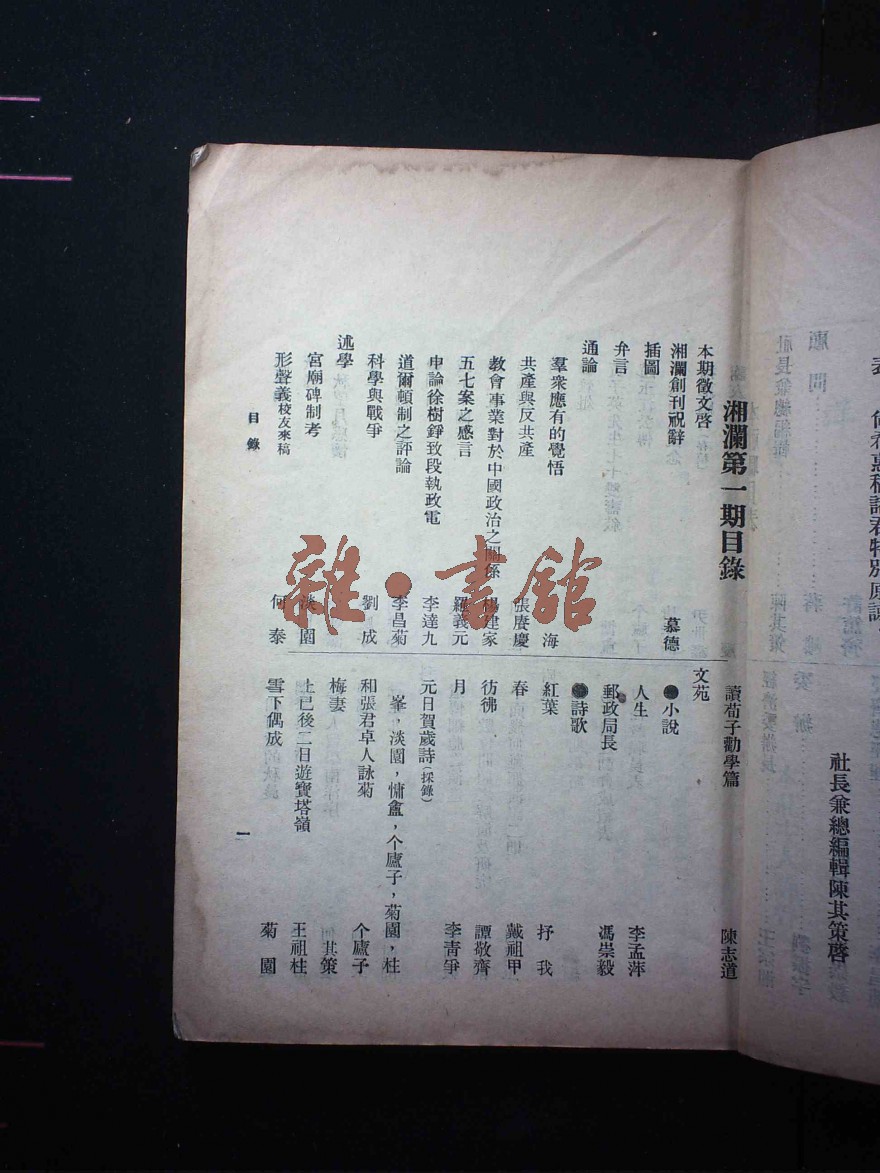 社長兼總編輯陳其策啓
湘瀾第一期目錄
本期徵文啓
湘瀾創刊祝辭 慕德
插圖
弁言
通論
羣衆應有的覺悟 海
共產與反共產 張賡慶
教會事業對於中國政治之關係 楊建家
五七案之感言 羅義元
申論徐樹錚致段執政電 李達九
道爾頓制之評論 李昌菊
科學與戰爭 劉成
述學
宮廟碑制考 淡園
形聲義校友來稿 何泰
讀荀子勸學篇 陳志道
文苑
●小說
人生 李孟萍
郵政局長 馮崇毅
●詩歌
紅葉 抒我
春 戴祖甲
彷彿 譚敬齊
月 李青爭
元日賀歲詩(採錄)
峯，淡園，慵盦，个廬子，菊園，桂
和張君卓人詠菊 个廬子
梅妻 何其策
上已後二日遊寶塔嶺 王祖桂
雪下偶成 菊園
目錄
一
雜·書館